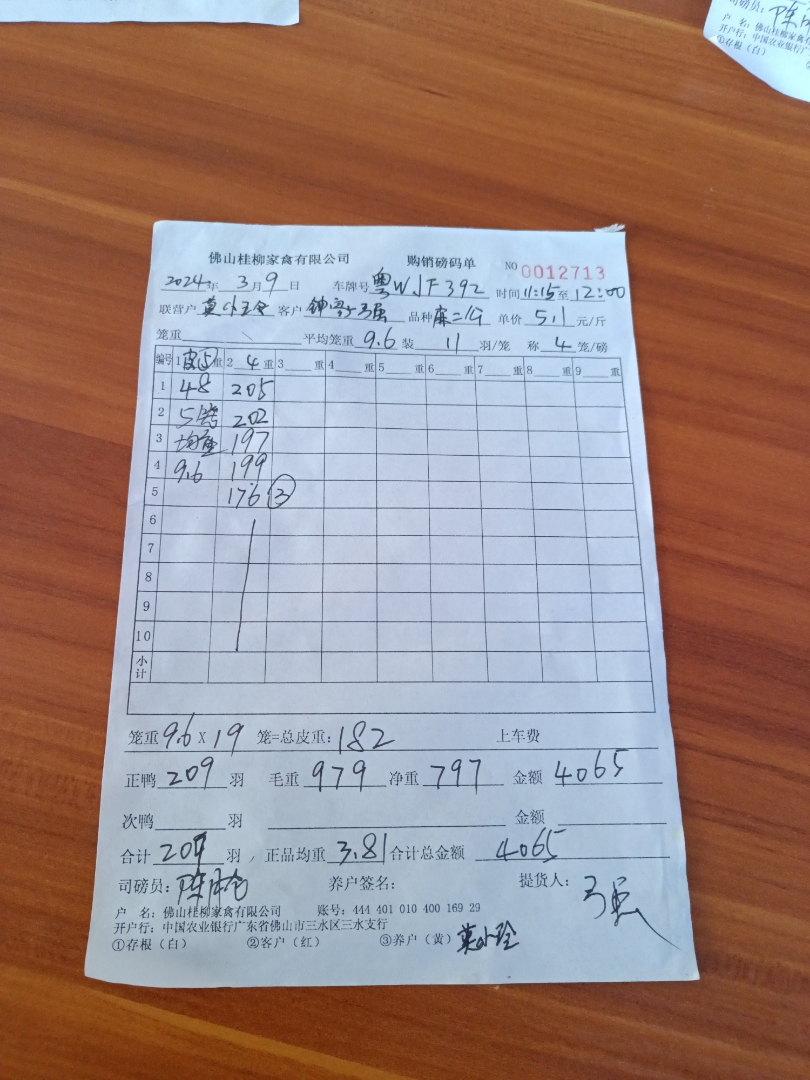 司磅员：
户　名：佛山桂柳家禽有
开户行：中国农业银行广
①存根（白）
佛山桂柳家禽有限公司 购销磅码单 NO 0012713
2024年 3月 9日 车牌号 粤WJF392 时间 11:15 至 12:00
联营户 客户 品种 麻二 单价 5.1 元/斤
笼重 平均笼重 9.6 装 11 羽/笼 称 4 笼/磅
编号 1 皮⑤重 2 4 重 3 重 4 重 5 重 6 重 7 重 8 重 9 重
1 48 205
2 5 202
3 均重 197
4 9.6 199
5 176 ③
6
7
8
9
10
小计
笼重 9.6 X 19 笼=总皮重：182 上车费
正鸭 209 羽 毛重 979 净重 797 金额 4065
次鸭 羽 金额
合计 209 羽、正品均重 3.81 合计总金额 4065
司磅员： 养户签名： 提货人：
户　名：佛山桂柳家禽有限公司 账号：444 401 010 400 169 29
开户行：中国农业银行广东省佛山市三水区三水支行
①存根（白） ②客户（红） ③养户（黄）